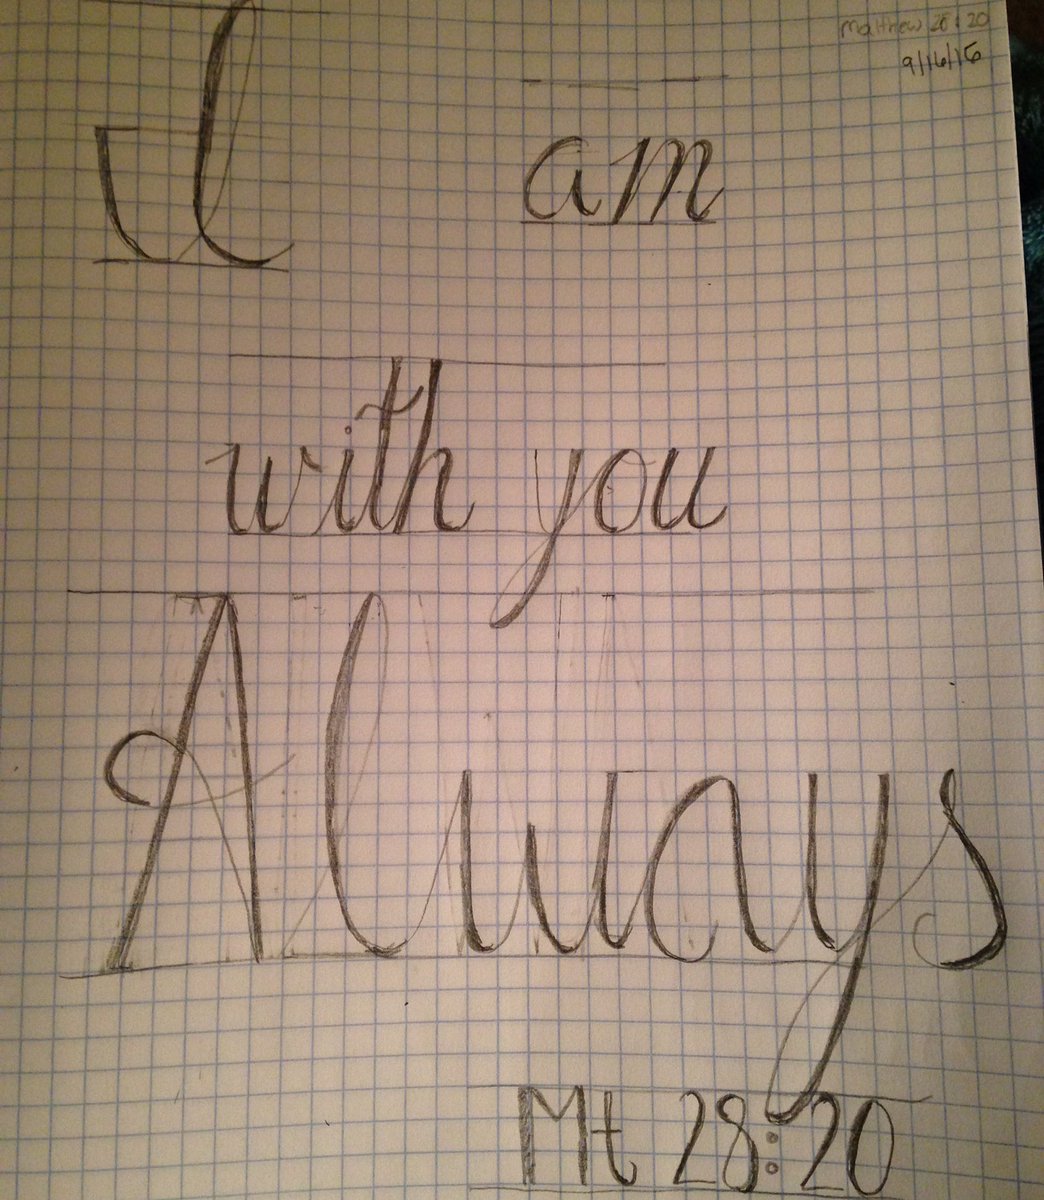 Matthew 28:20
9/16/16
I am
with you
Always
Mt 28:20